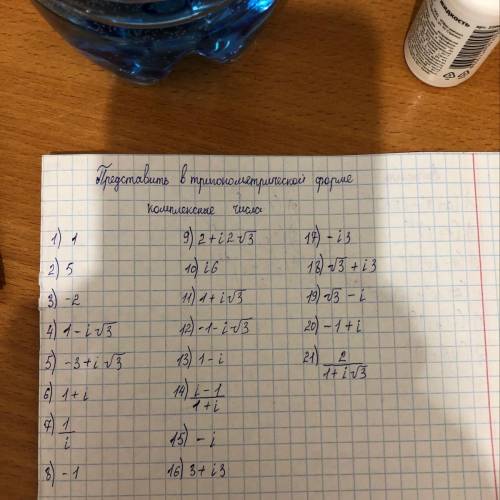 жидкость
Представить в тригонометрической форме
комплексные числа
1) 1
2) 5
3) -2
4) 1-i√3
5) -3+i√3
6) 1+i
7) 1/i
8) -1
9) 2+i2√3
10) i6
11) 1+i√3
12) -1-i√3
13) 1-i
14) i-1/1+i
15) -i
16) 3+i3
17) -i3
18) √3+i3
19) √3-i
20) -1+i
21) 2/1+i√3